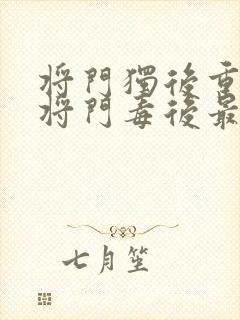 將門獨後重
將門毒後最
七月笙